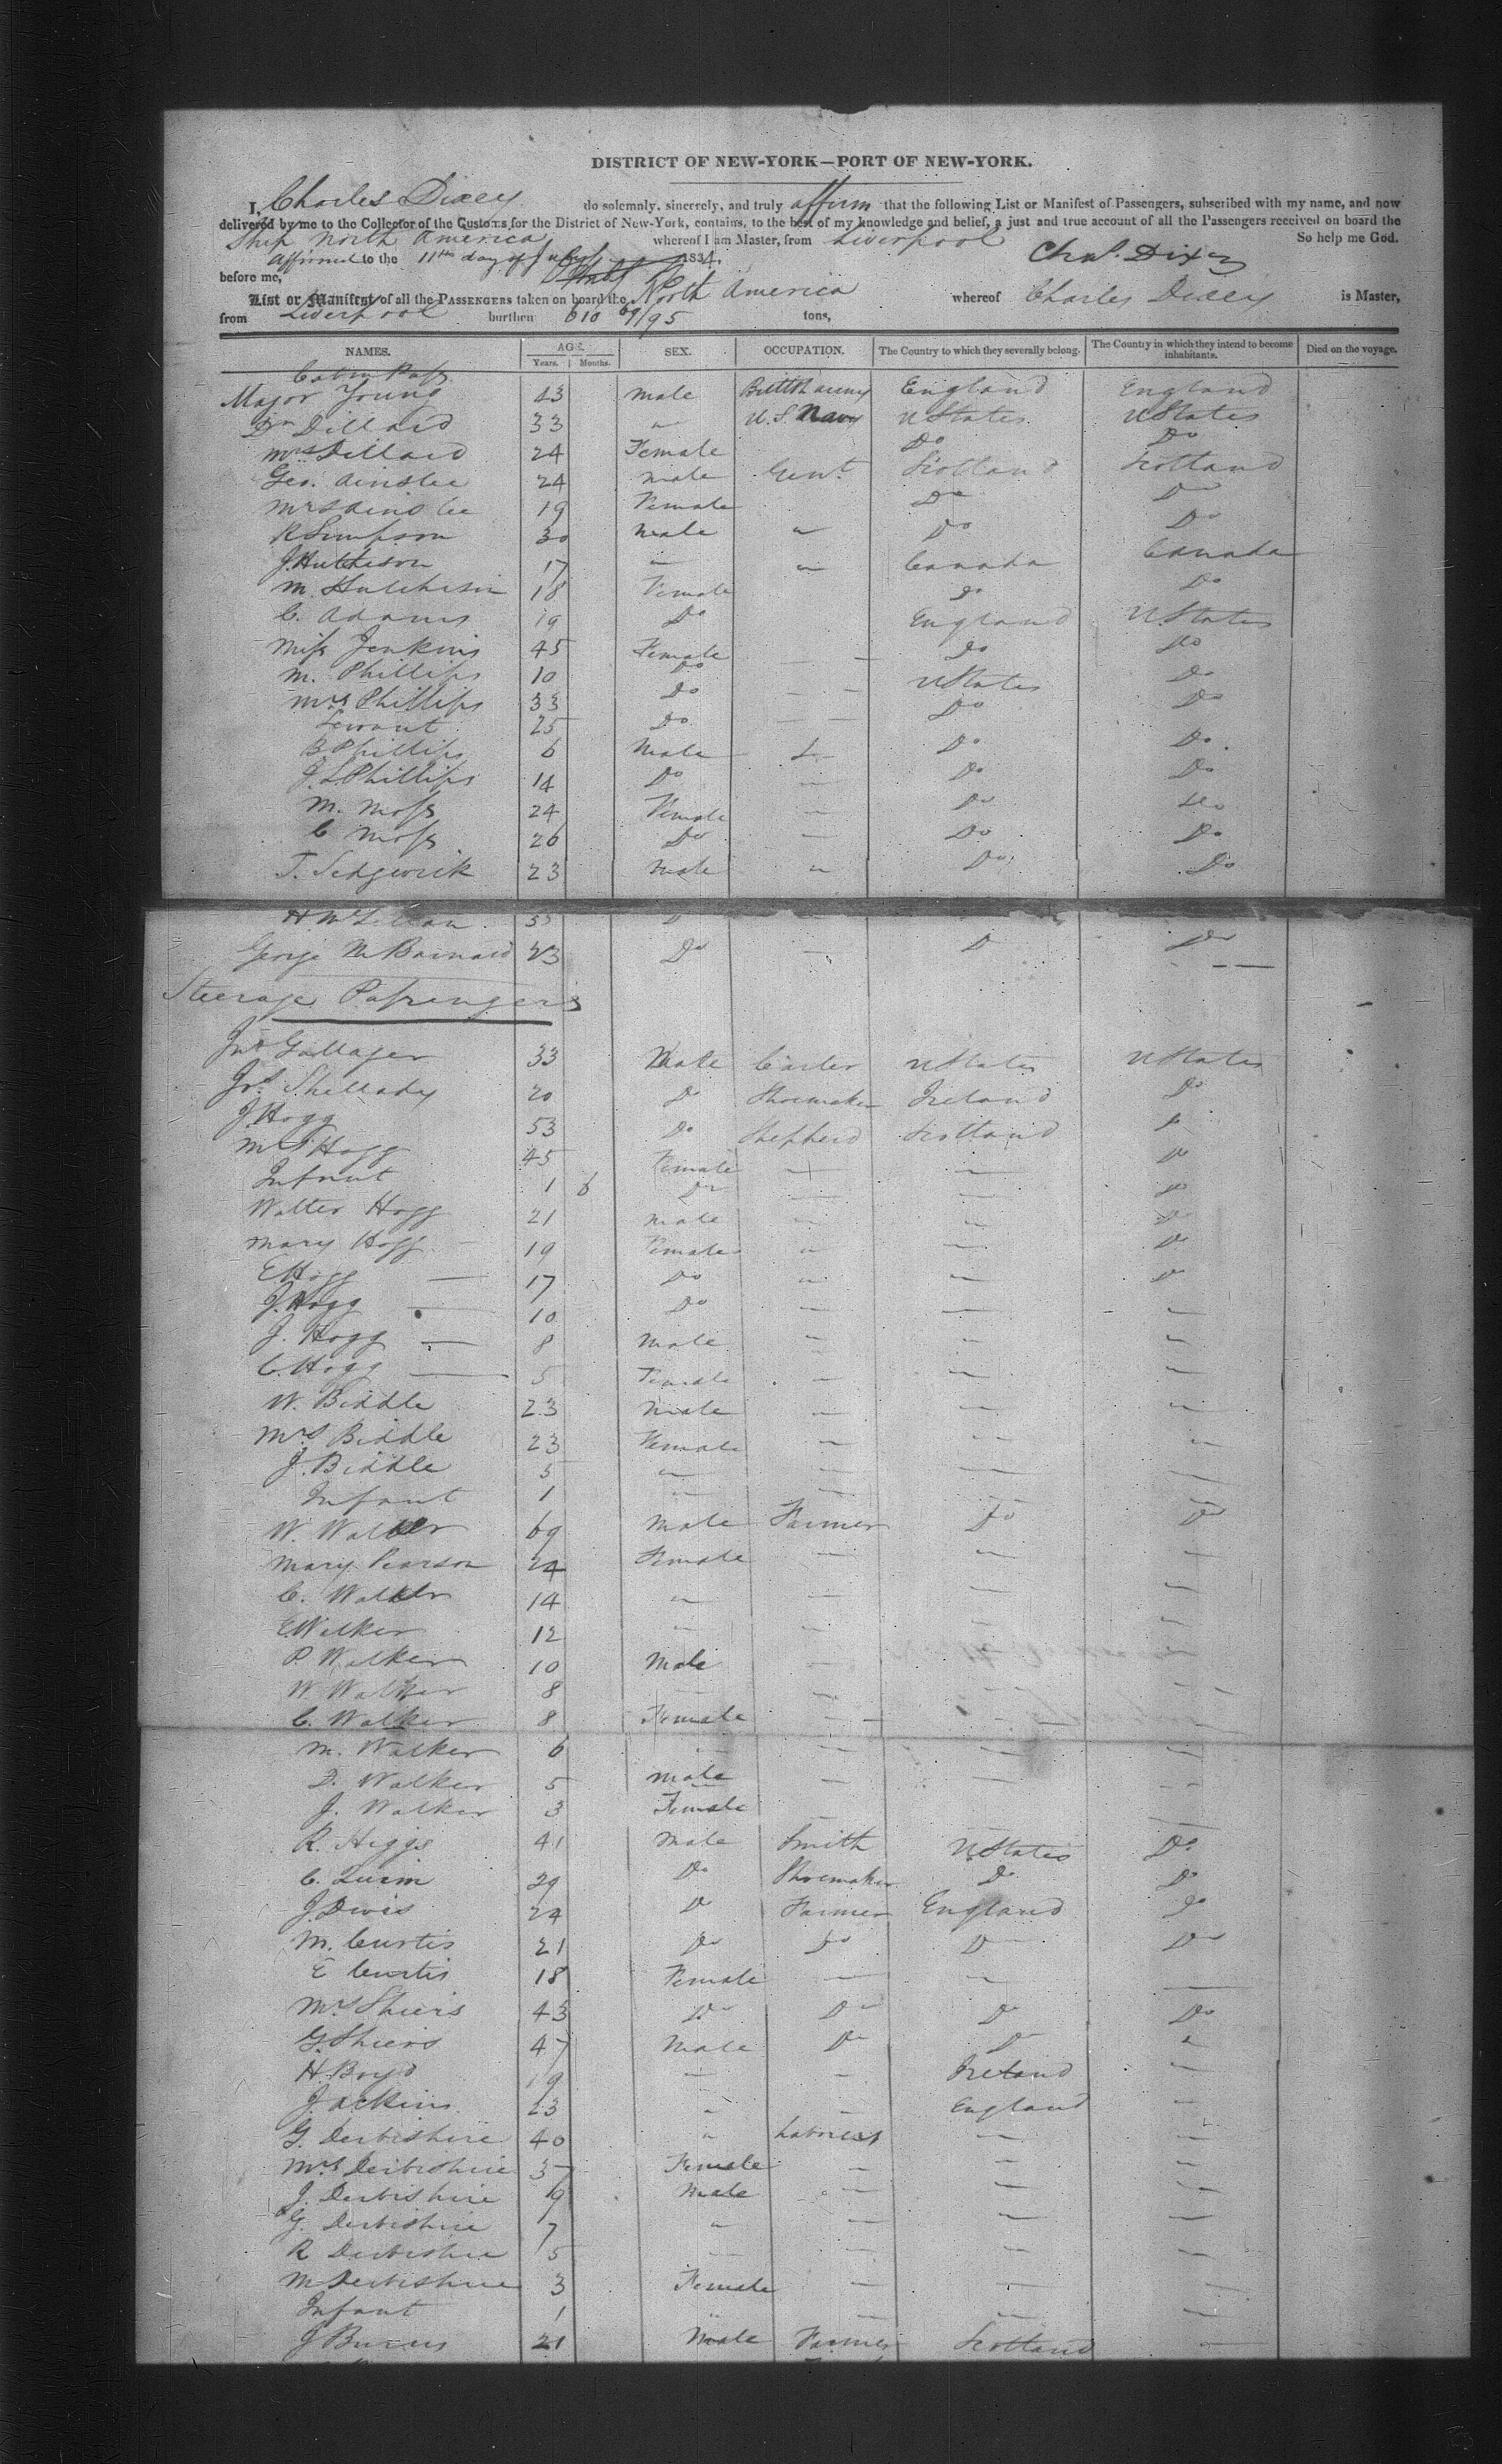 DISTRICT OF NEW-YORK—PORT OF NEW-YORK.
I, Charles Dixey do solemnly, sincerely, and truly affirm that the following List or Manifest of Passengers, subscribed with my name, and now
delivered by me to the Collector of the Customs for the District of New-York, contains, to the best of my knowledge and belief, a just and true account of all the Passengers received on board the
Ship North America whereof I am Master, from Liverpool So help me God.
Affirmed to the 11th day of July 1834, Chas. Dixey
before me,
List or Manifest of all the PASSENGERS taken on board the North America whereof Charles Dixey is Master,
from Liverpool burthen 610 69/95 tons,
NAMES. AGE. Years. Months. SEX. OCCUPATION. The Country to which they severally belong. The Country in which they intend to become inhabitants. Died on the voyage.
Cabin Pass
Major Young 43 male British army England England
Dr Dillard 33 " U.S. Navy U States U States
Mrs Dillard 24 Female Do Do
Geo. Ainslee 24 male Gent Scotland Scotland
Mrs Ainslee 19 Female Do Do
R Simpson 30 male " Do Do
J. Hutchison 17 " " Canada Canada
M. Hutchison 18 Female Do Do
C. Adams 19 Do England U States
Miss Jenkins 45 Female Do Do
M. Phillips 10 Do U States Do
Mrs Phillips 33 Do Do Do
Servant 25 Do
B Phillips 6 Male Do Do
J. L. Phillips 14 Do Do Do
M. Moss 24 Female Do Do
C Moss 26 Do Do Do
T. Sedgwick 23 male " Do Do
George M Barnard 23 Do — D Do
Steerage Passengers
Jno Gallager 33 Male Carter U States U States
Jos. Shellady 20 Do Shoemaker Ireland Do
J. Hogg 53 Do Shepherd Scotland Do
Mrs Hogg 45 Female — — Do
Infant 1 6 Do — — Do
Walter Hogg 21 male " " Do
Mary Hogg 19 Female " " Do
E Hogg 17 Do " " Do
J. Hogg 10 Do — — "
J. Hogg 8 male " " "
C. Hogg 5 Female — " "
W. Biddle 23 male " " "
Mrs Biddle 23 Female " " "
J. Biddle 5 " — — —
Infant 1 " —
W. Walker 69 male Farmer Do Do
Mary Pearson 24 Female — " —
C. Walker 14 " — — "
E. Walker 12 " " "
P. Walker 10 Male —
W Walker 8
C. Walker 8 Female
M. Walker 6 " — — —
D. Walker 5 male
J. Walker 3 Female
R. Higgs 41 male Smith U States Do
C. 29 Do Shoemaker Do Do
J 24 Do Farmer England Do
M. Curtis 21 Do Do Do Do
E Curtis 18 Female — " —
Mrs Shiers 43 Do Do Do Do
G. Shiers 47 Male Do Do "
H. Boyd 19 — — Ireland —
J. 23 " — England —
G. Derbishire 40 " Laborer — —
Mrs Derbishire 37 Female — — —
J. Derbishire 9 male — — —
G. Derbishire 7 " — — —
R Derbishire 5 — — —
M Derbishire 3 Female — — —
Infant 1 " — — —
J 21 Male Farmer Scotland —